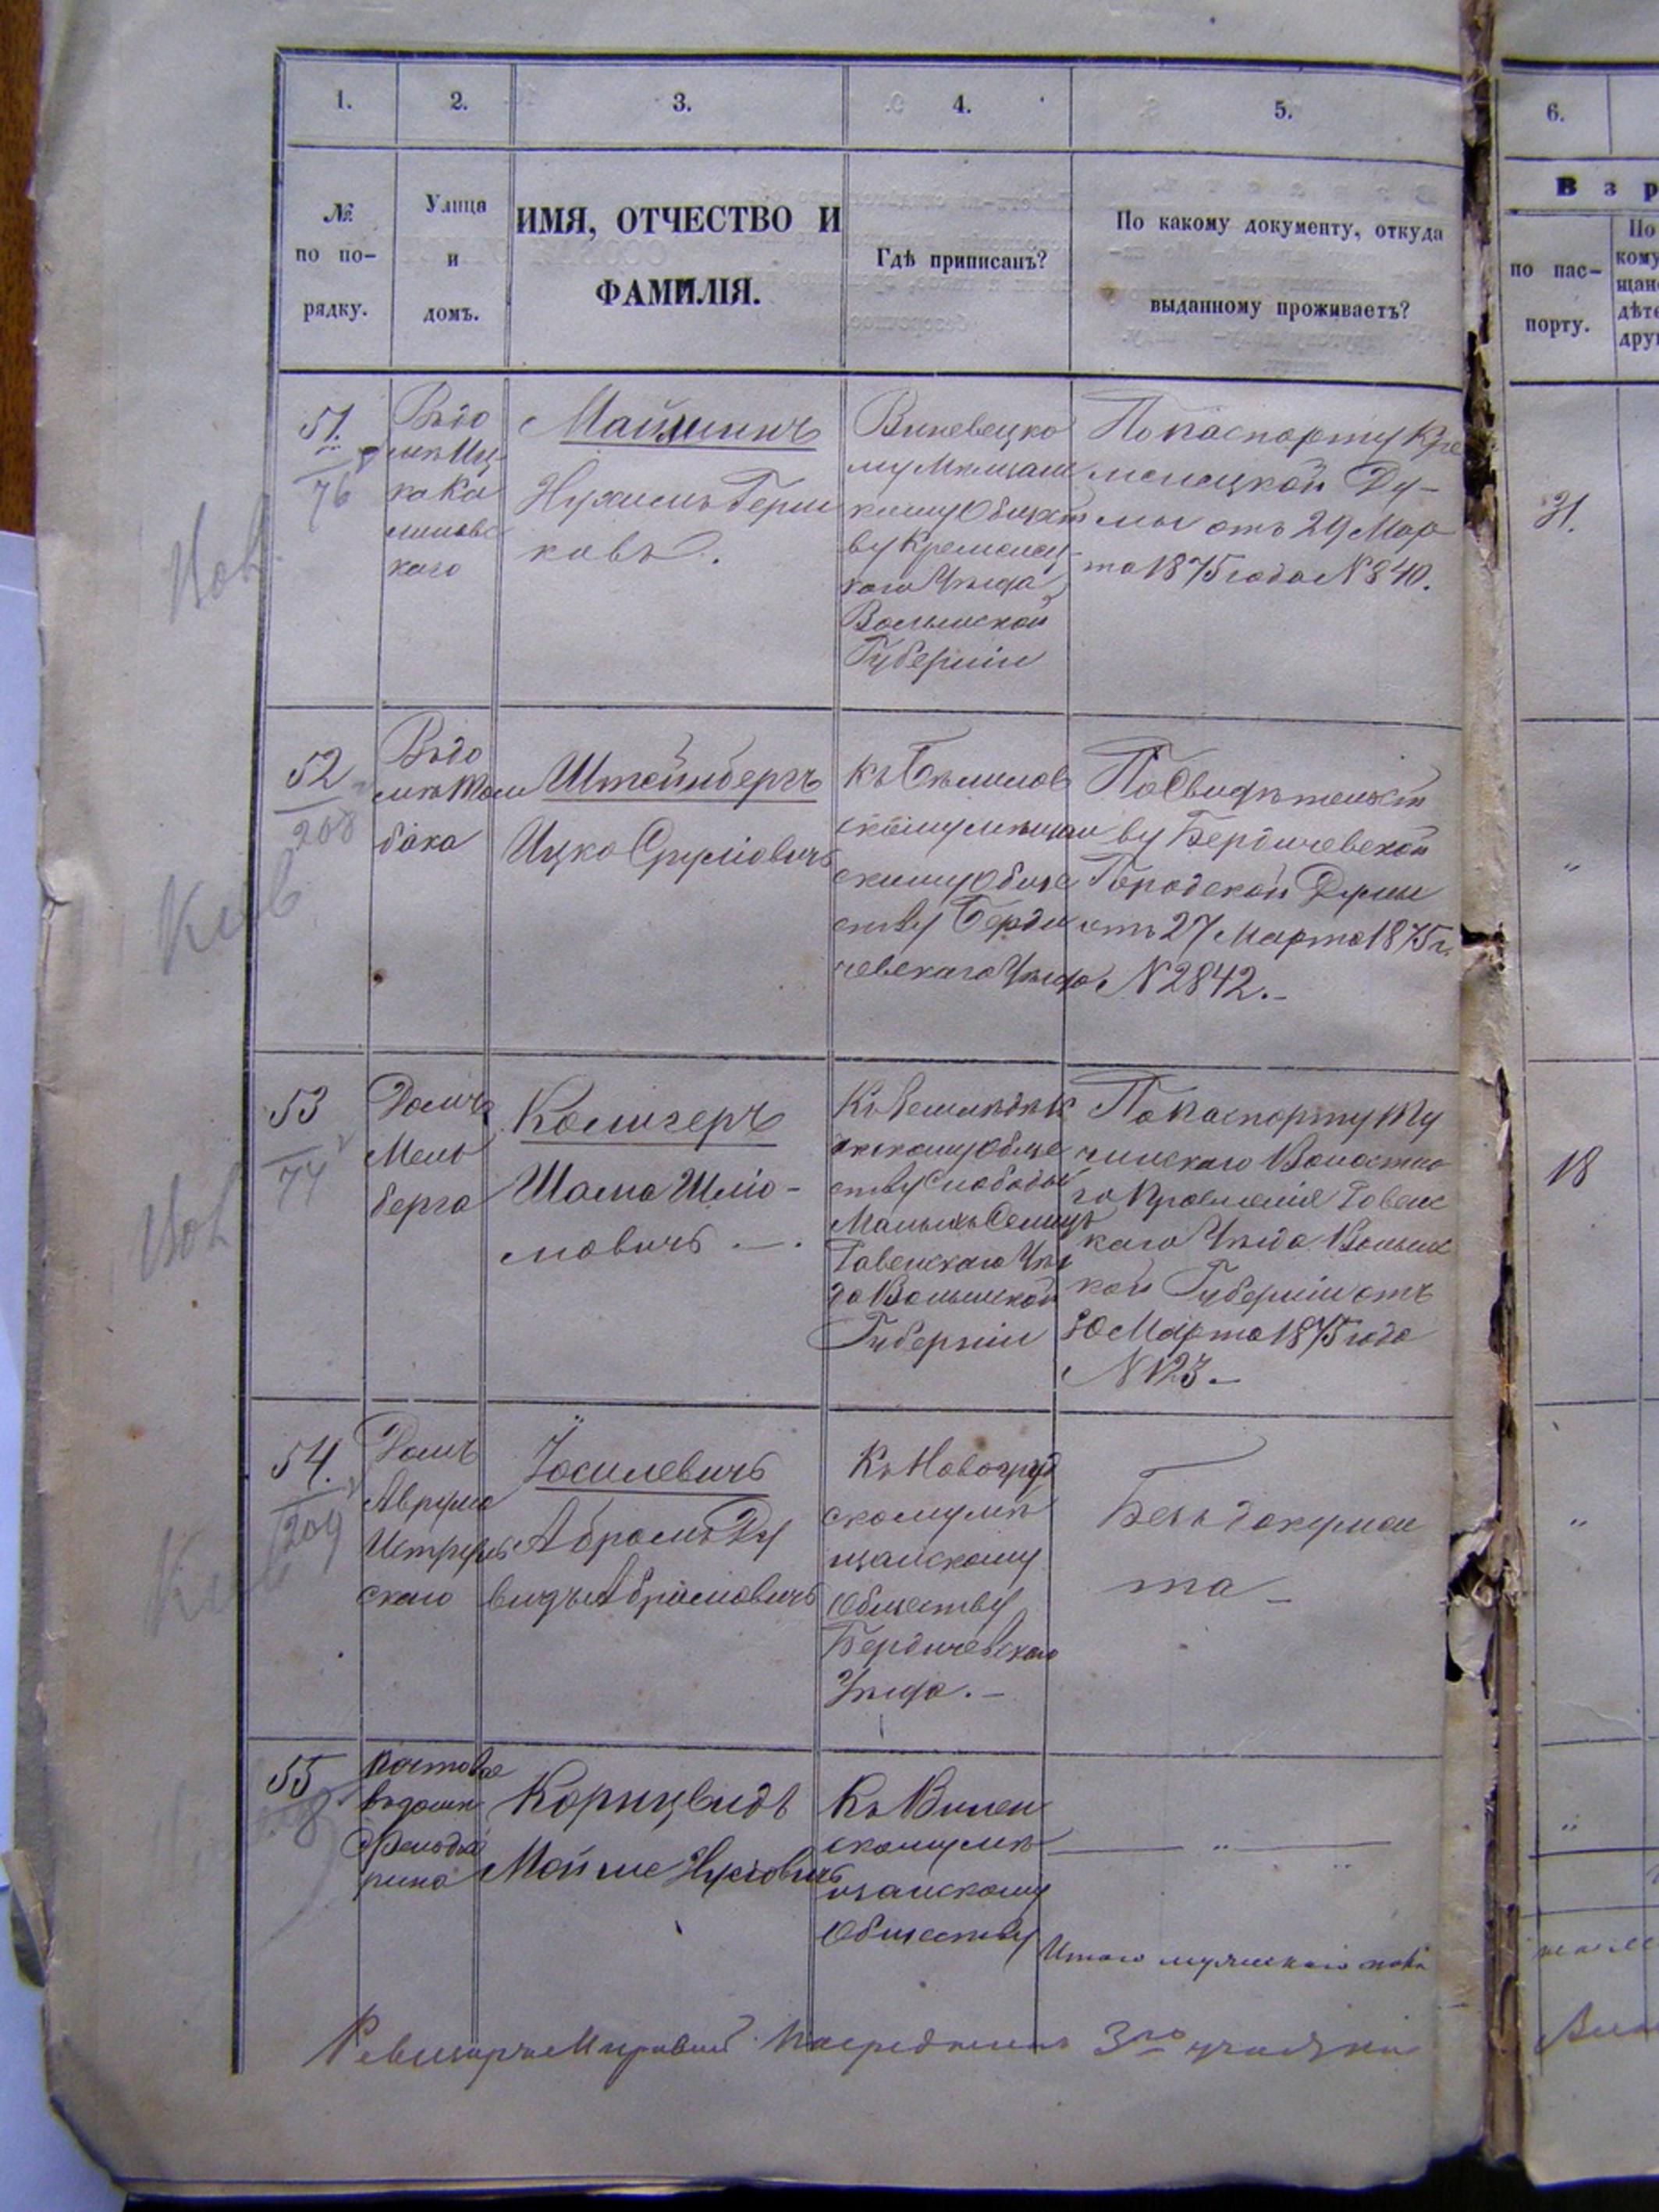 1.
2.
3.
4.
5.
6.
№
по по-
рядку.
Улица
и
домъ.
ИМЯ, ОТЧЕСТВО И
ФАМИЛІЯ.
Гдѣ приписанъ?
По какому документу, откуда
выданному проживаетъ?
В з р
по пас-
порту.
По
кому
щан
дѣте
друг
51.
76
Въ до
мѣ Иц
ка Ка
линовс
каго
Маймишъ
Нухимъ Герш
ковъ.
Вишневецко
му Мѣщанс
кому Общест
ву Кременец
каго Уѣзда
Волынской
Губерніи
По паспорту Кре
менецкой Ду-
мы отъ 29 Мар
та 1875 года № 840.
31.
52
208
Въ до
мѣ
бака
Штейнбергъ
Ицко Сруліовичъ
Къ Бѣлилов
скому мѣщан
скому обще
ству Берди
чевскаго Уѣзда
По Свидѣтельст
ву Бердичевской
Городской Думы
отъ 27 Марта 1875 г.
№ 2842.-
"
53
77
Домъ
Мель
берга
Колигеръ
Шама Шлио-
мовичъ —.
Къ Земледѣль
ческому обще
ству слободы
Малыхъ Селищъ
Ровенскаго Уѣз
да Волынской
Губерніи
По паспорту Ту
чинскаго Волостна
го Правленія Ровенс
каго Уѣзда Волынс
кой Губерніи отъ
30 Марта 1875 года
№ 123.-
18
54.
209
Домъ
Аврума
скаго
Іосилевичъ
Абрамъ Ду
видъ Абрамовичъ
Къ Новогруд
скому мѣ
щанскому
Обществу
Бердичевскаго
Уѣзда.-
Безъ докумен
та -
"
55
въ домѣ
Фельдма
Корнцвидъ
Мойше Нухіовичъ
Къ Вилен
скому мѣ
щанскому
Обществу
— " —
"
Итого мужскаго пола
Ревизоръ Мировой Посредникъ 3го участка